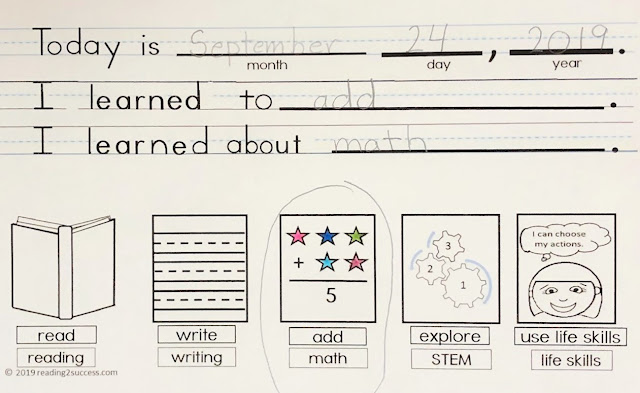 Today is September 24, 2019.
month day year
I learned to add.
I learned about math.
I can choose
my actions.
3
2
1
+
5
read write add explore use life skills
reading writing math STEM life skills
© 2019 reading2success.com